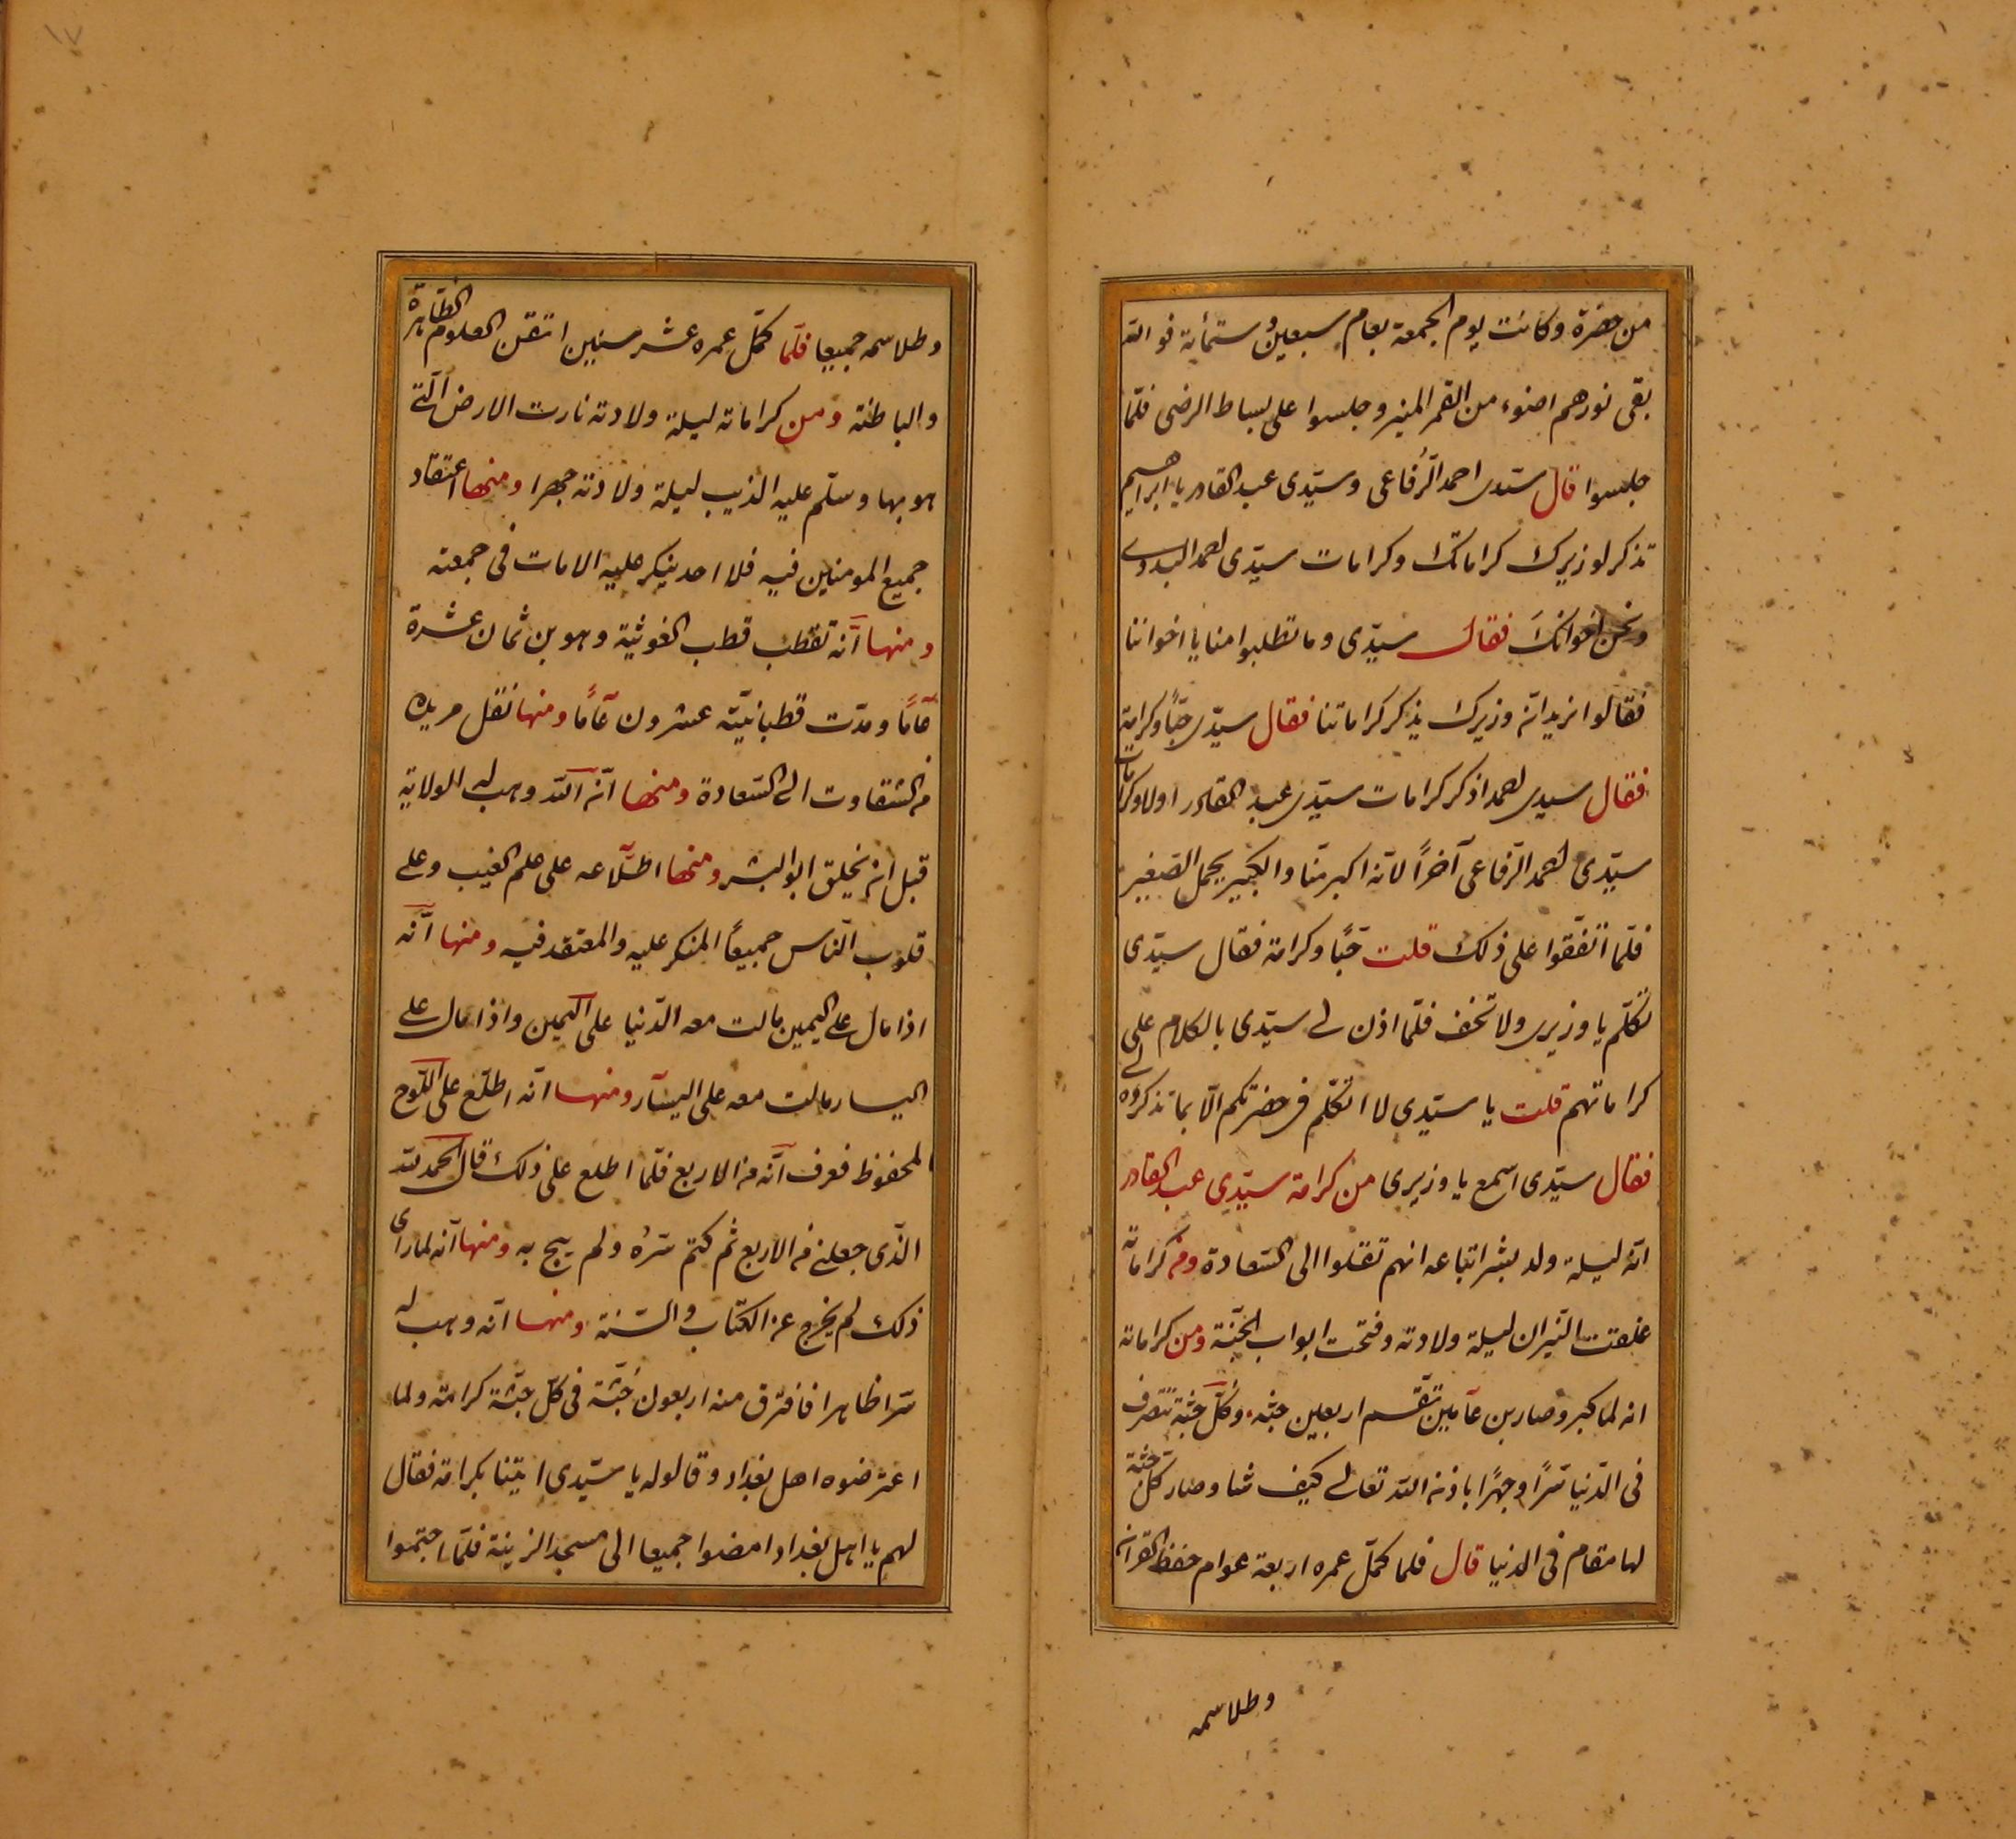 من حضرة وكانت يوم الجمعة بعام سبعين وستمأية فو الله
بقى نورهم اضوء من القمر المنير وجلسوا على بساط الرضى فلمّا
جلسوا قال سيّدى احمد الرّفاعى وسيّدى عبد القادر يا ابراهيم
تذكر لوزيرك كراماتك وكرامات سيّدى احمد البدوى
ونحن اخوانك فقال سيّدى وما تطلبوا منا يا اخواننا
فقالوا نريد انّ وزيرك يذكر كراماتنا فقال سيّدى حبّاً وكرامة
فقال سيدى احمد اذكر كرامات سيّدى عبد القادر اولا وكرامات
سيّدى احمد الرّفاعى آخراً لانّه اكبر منّا والكبير يحمل الصّغير
فلمّا اتّفقوا على ذلك قلت حبّاً وكرامة فقال سيّدى
تكلّم يا وزيرى ولا تخف فلمّا اذن لى سيّدى بالكلام على
كراماتهم قلت يا سيّدى لا اتكلّم فى حضرتكم الّا بما تذكروه لى
فقال سيّدى اسمع يا وزيرى من كرامة سيّدى عبد القادر
انّه ليلة ولد بشر اتباعه انهم تنقلوا الى السّعادة ومن كراماته
غلقت النّيران ليلة ولادته وفتحت ابواب الجنّة ومن كراماته
انه لما كبر وصار بن عآمين تقّسم اربعين جثه وكلّ جثة تتصرف
فى الدّنيا سرّاً وجهرًا باذن الله تعالى كيف شا وصار كلّ جثة
لها مقام فى الدنيا قال فلما كمّل عمره اربعة عوام حفظ القران
وطلاسمه
١٧
وطلاسمه جميعا فلّما كمّل عمره عشر سنين اتقن العلوم الظّاهرة
والباطنة ومن كراماته ليلة ولادته نارت الارض الّتى
هو بها وسلّم عليه الذيب ليلة ولادته جهرا ومنها اعتقاد
جميع المومنين فيه فلا احد ينكر عليه الا مات فى جمعته
ومنها انّه تقطب قطب الغوثية وهو بن ثمان عشرة
عآمًا ومدّت قطبانيّته عشرون عآمًا ومنها نقل مريده
من الشقاوت الى السّعادة ومنها انّه الله وهب له الولاية
قبل ان يخلق ابو البشر ومنها اطّلآعه على علم الغيب وعلى
قلوب النّاس جميعاً المنكر عليه والمعتقد فيه ومنها انّه
اذا مال على اليمين مالت معه الدّنيا على اليمين واذا مال على
اليسار مالت معه على اليسآر ومنها انّه اطلّع على اللّوح
المحفوظ فعرف انّه من الاربع فلّما اطلع على ذلك قال الحمد لله
الذّى جعلنى من الاربع ثم كتم سّره ولم يبح به ومنها انّه لما راى
ذلك لم يخرج عن الكتاب والسّنة ومنها انّه وهب له
سّرا ظاهرا فافترق منه اربعون جثّة فى كلّ جثّة كرامة ولما
اعترضوه اهل بغداد وقالوله يا سيّدى ايتينا بكرامة فقال
لهم يا اهل بغداد امضوا جميعا الى مسجد الزينة فلمّا اجتمعوا